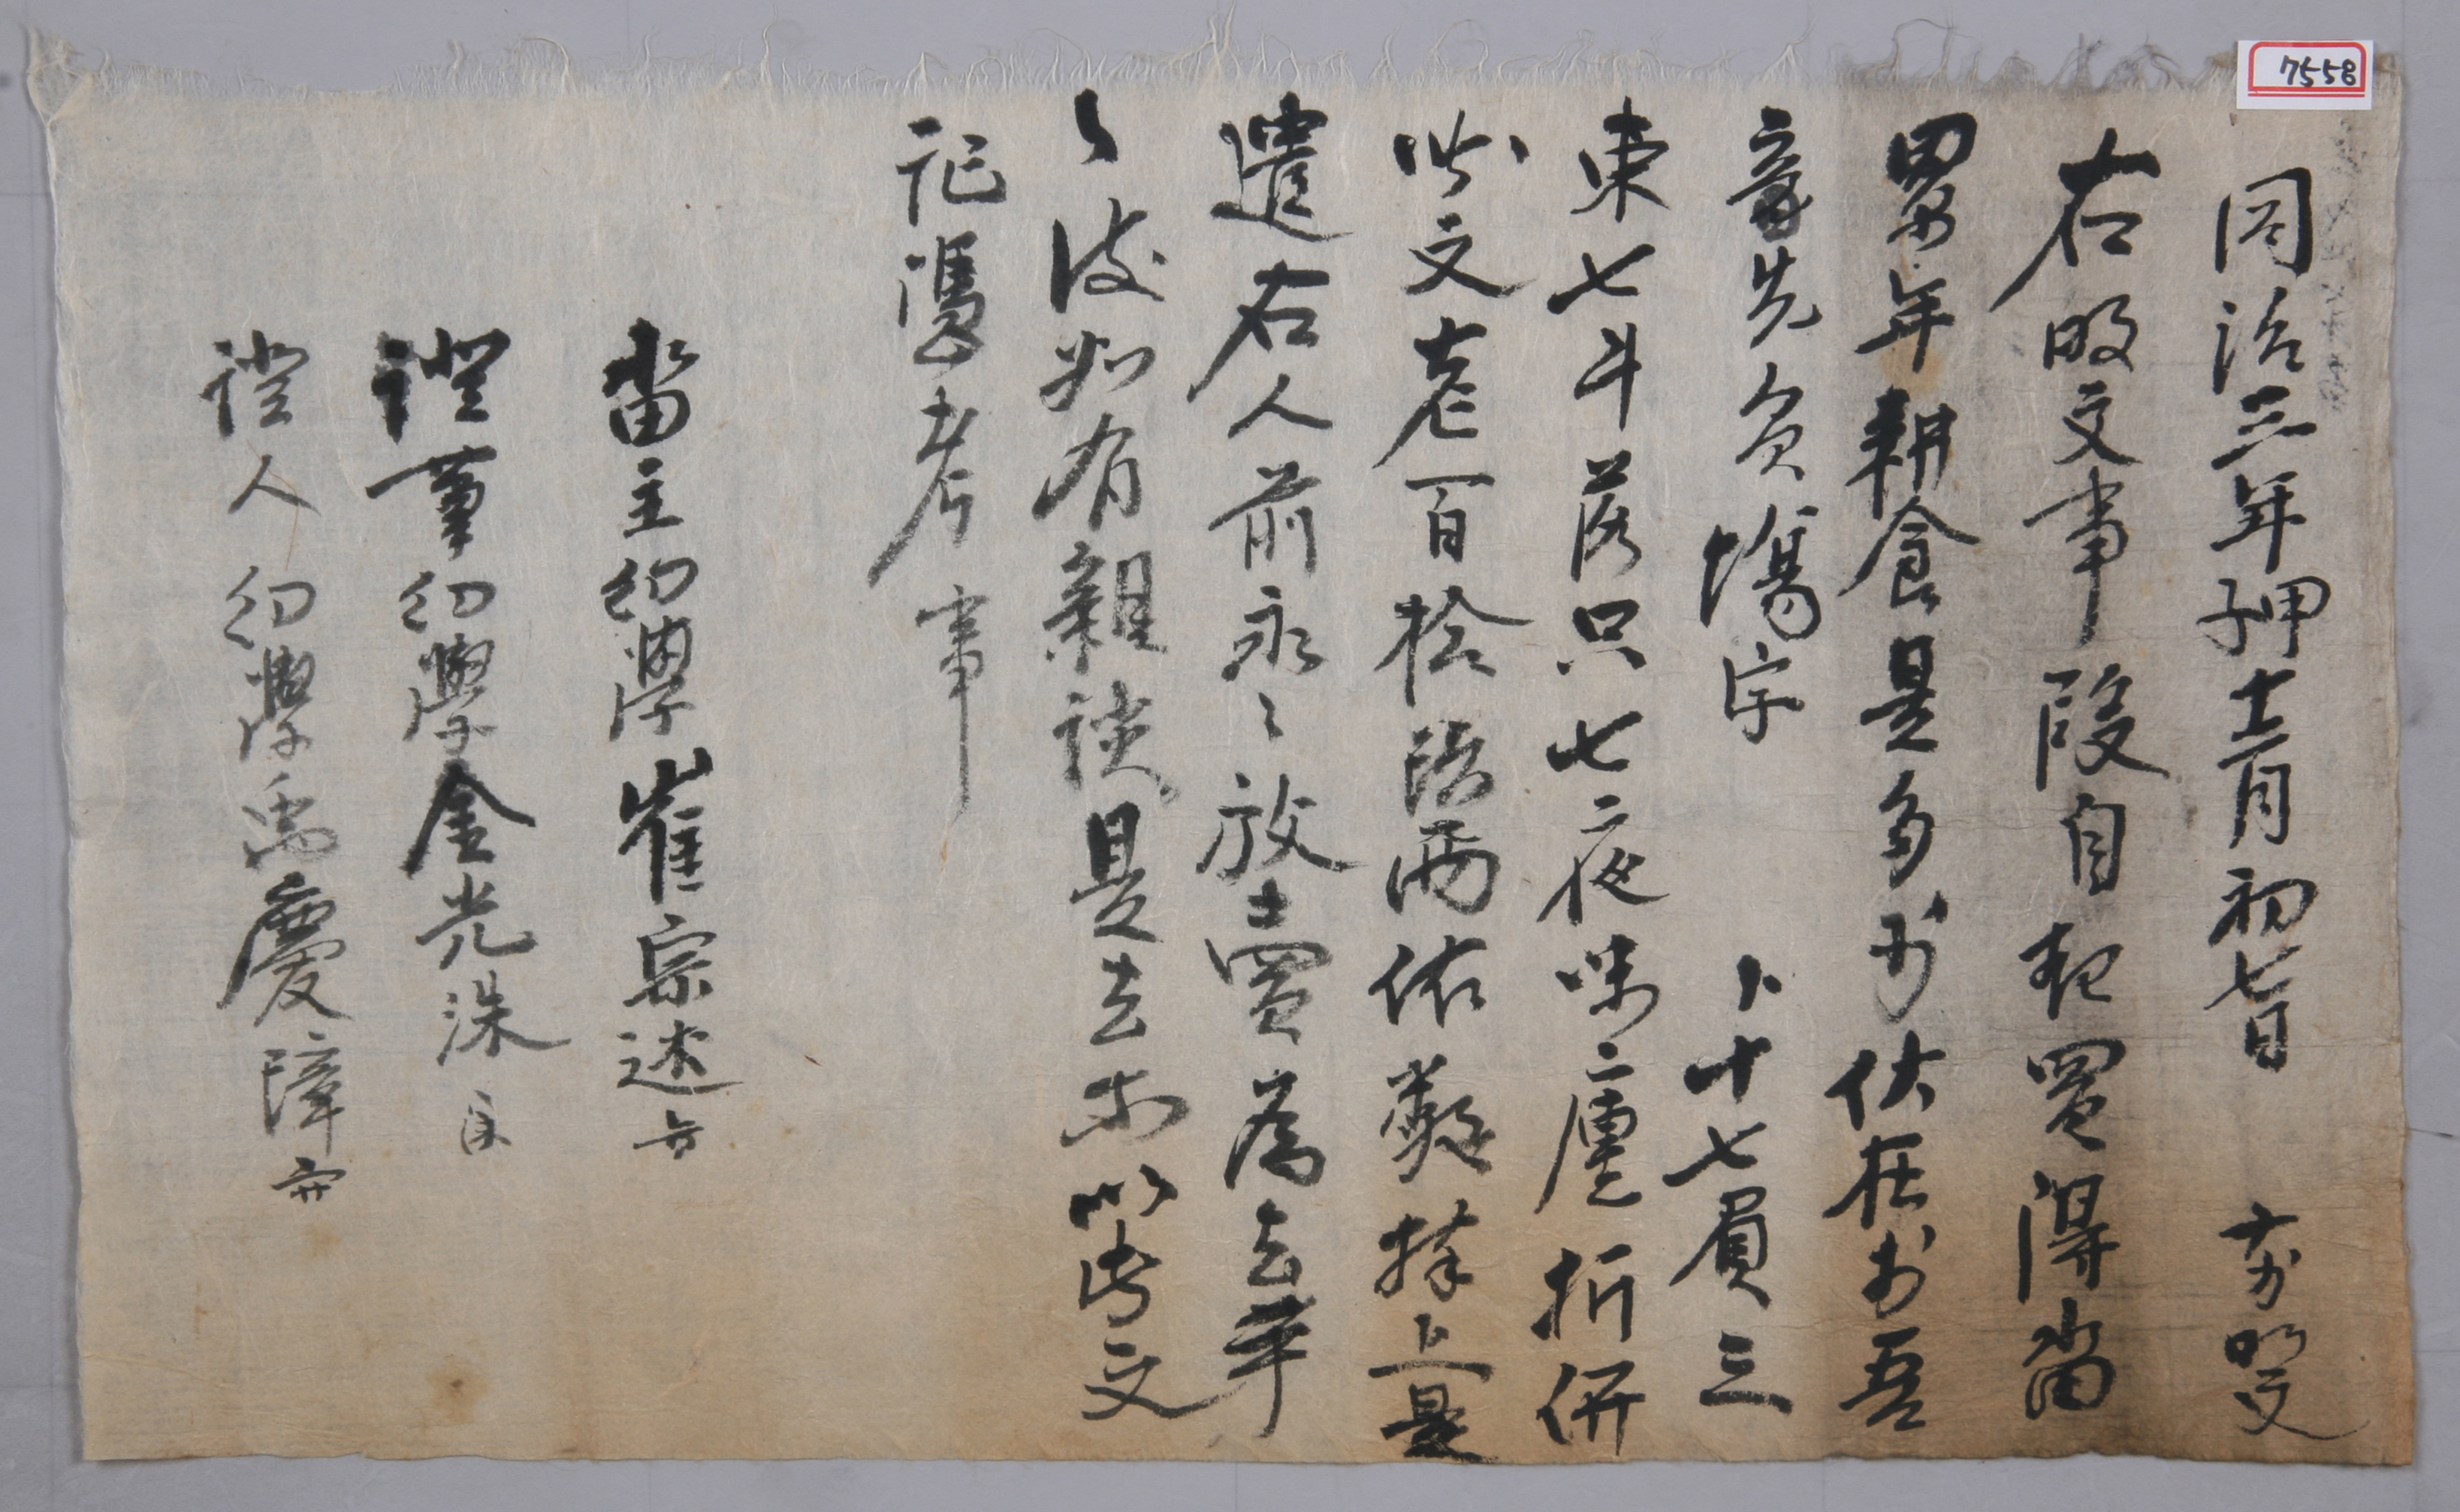 7558
同治三年甲子十二月初七日 前明文
右明文事段自起買得畓
累年耕食是多可伏在於吾
音先負塲字 卜十七負三
束七斗落只七夜味二庫折併
文壹百拾陸兩依數捧上是
遣右人前永〻放賣爲去乎
〻後如有雜談是去等以此文
記憑考事
畓主幼學崔宗述
證筆幼學金光洙
證人幼學禹慶障